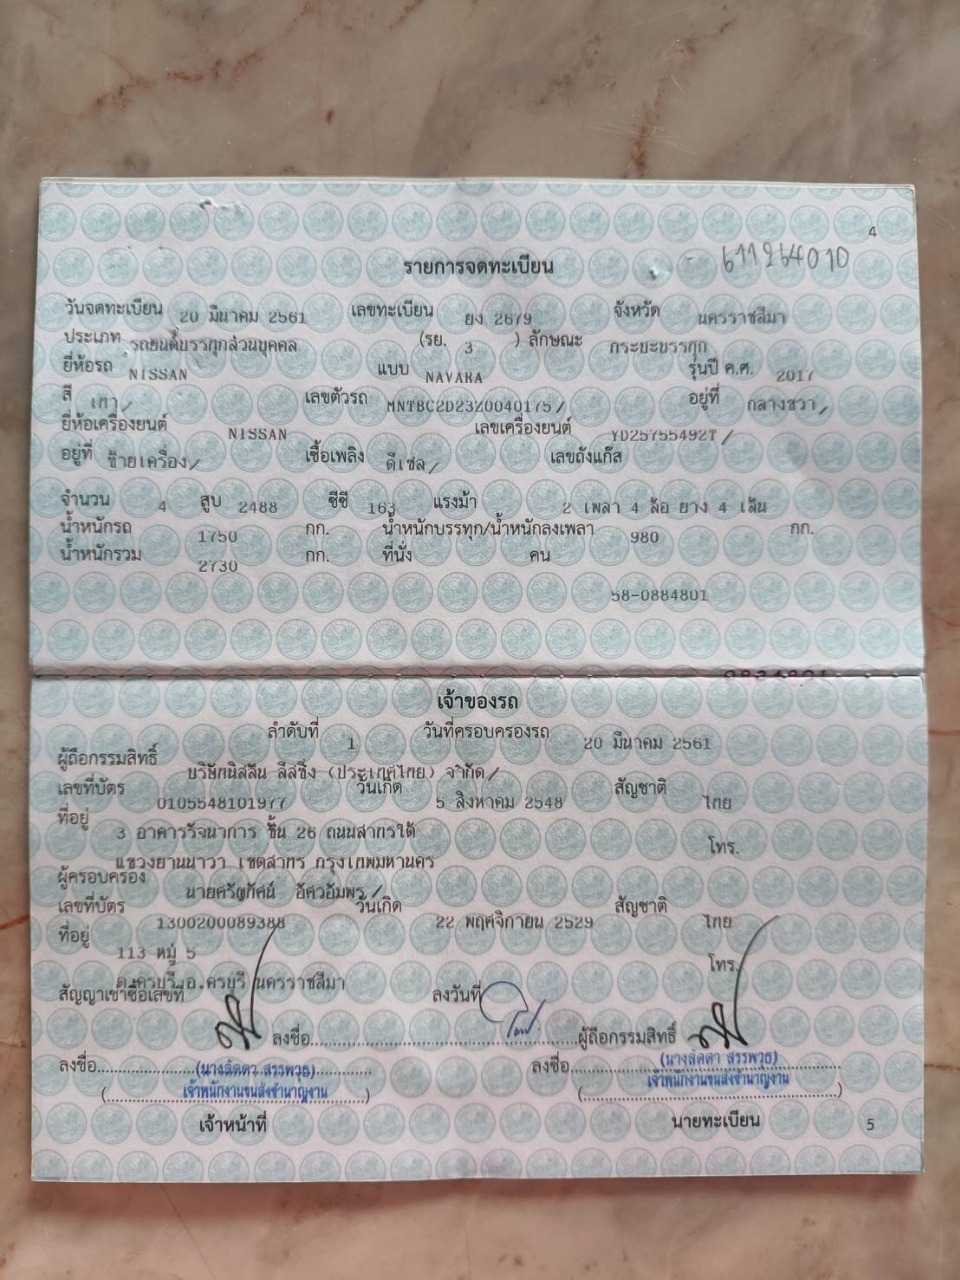 4
611264010
รายการจดทะเบียน
วันจดทะเบียน 20 มีนาคม 2561 เลขทะเบียน ยง 2679 จังหวัด นครราชสีมา
ประเภท รถยนต์บรรทุกส่วนบุคคล (รย. 3 ) ลักษณะ กระบะบรรทุก
ยี่ห้อรถ NISSAN แบบ NAVARA รุ่นปี ค.ศ. 2017
สี เทา/ เลขตัวรถ MNTBC2D23Z0040175/ อยู่ที่ กลางขวา/
ยี่ห้อเครื่องยนต์ NISSAN เลขเครื่องยนต์ YD25755492T/
อยู่ที่ ซ้ายเครื่อง/ เชื้อเพลิง ดีเซล/ เลขถังแก๊ส
จำนวน 4 สูบ 2488 ซีซี 163 แรงม้า 2 เพลา 4 ล้อ ยาง 4 เส้น
น้ำหนักรถ 1750 กก. น้ำหนักบรรทุก/น้ำหนักลงเพลา 980 กก.
น้ำหนักรวม 2730 กก. ที่นั่ง คน
58-0884801
เจ้าของรถ
ลำดับที่ 1 วันที่ครอบครองรถ 20 มีนาคม 2561
ผู้ถือกรรมสิทธิ์ บริษัทนิสสัน ลีสซิ่ง (ประเทศไทย) จำกัด/
เลขที่บัตร 0105548101977 วันเกิด 5 สิงหาคม 2548 สัญชาติ ไทย
ที่อยู่ 3 อาคารรัจนาการ ชั้น 26 ถนนสาทรใต้
แขวงยานนาวา เขตสาทร กรุงเทพมหานคร โทร.
ผู้ครอบครอง นายศรัฐภัศน์ อัศวอัมพร/
เลขที่บัตร 1300200089388 วันเกิด 22 พฤศจิกายน 2529 สัญชาติ ไทย
ที่อยู่ 113 หมู่ 5
ต.ครบุรี อ.ครบุรี นครราชสีมา โทร.
สัญญาเช่าซื้อเลขที่ ลงวันที่
ลงชื่อ ผู้ถือกรรมสิทธิ์
ลงชื่อ (นางลัดดา สรรพวุธ) ลงชื่อ (นางลัดดา สรรพวุธ)
(เจ้าพนักงานขนส่งชำนาญงาน) (เจ้าพนักงานขนส่งชำนาญงาน)
เจ้าหน้าที่ นายทะเบียน
5